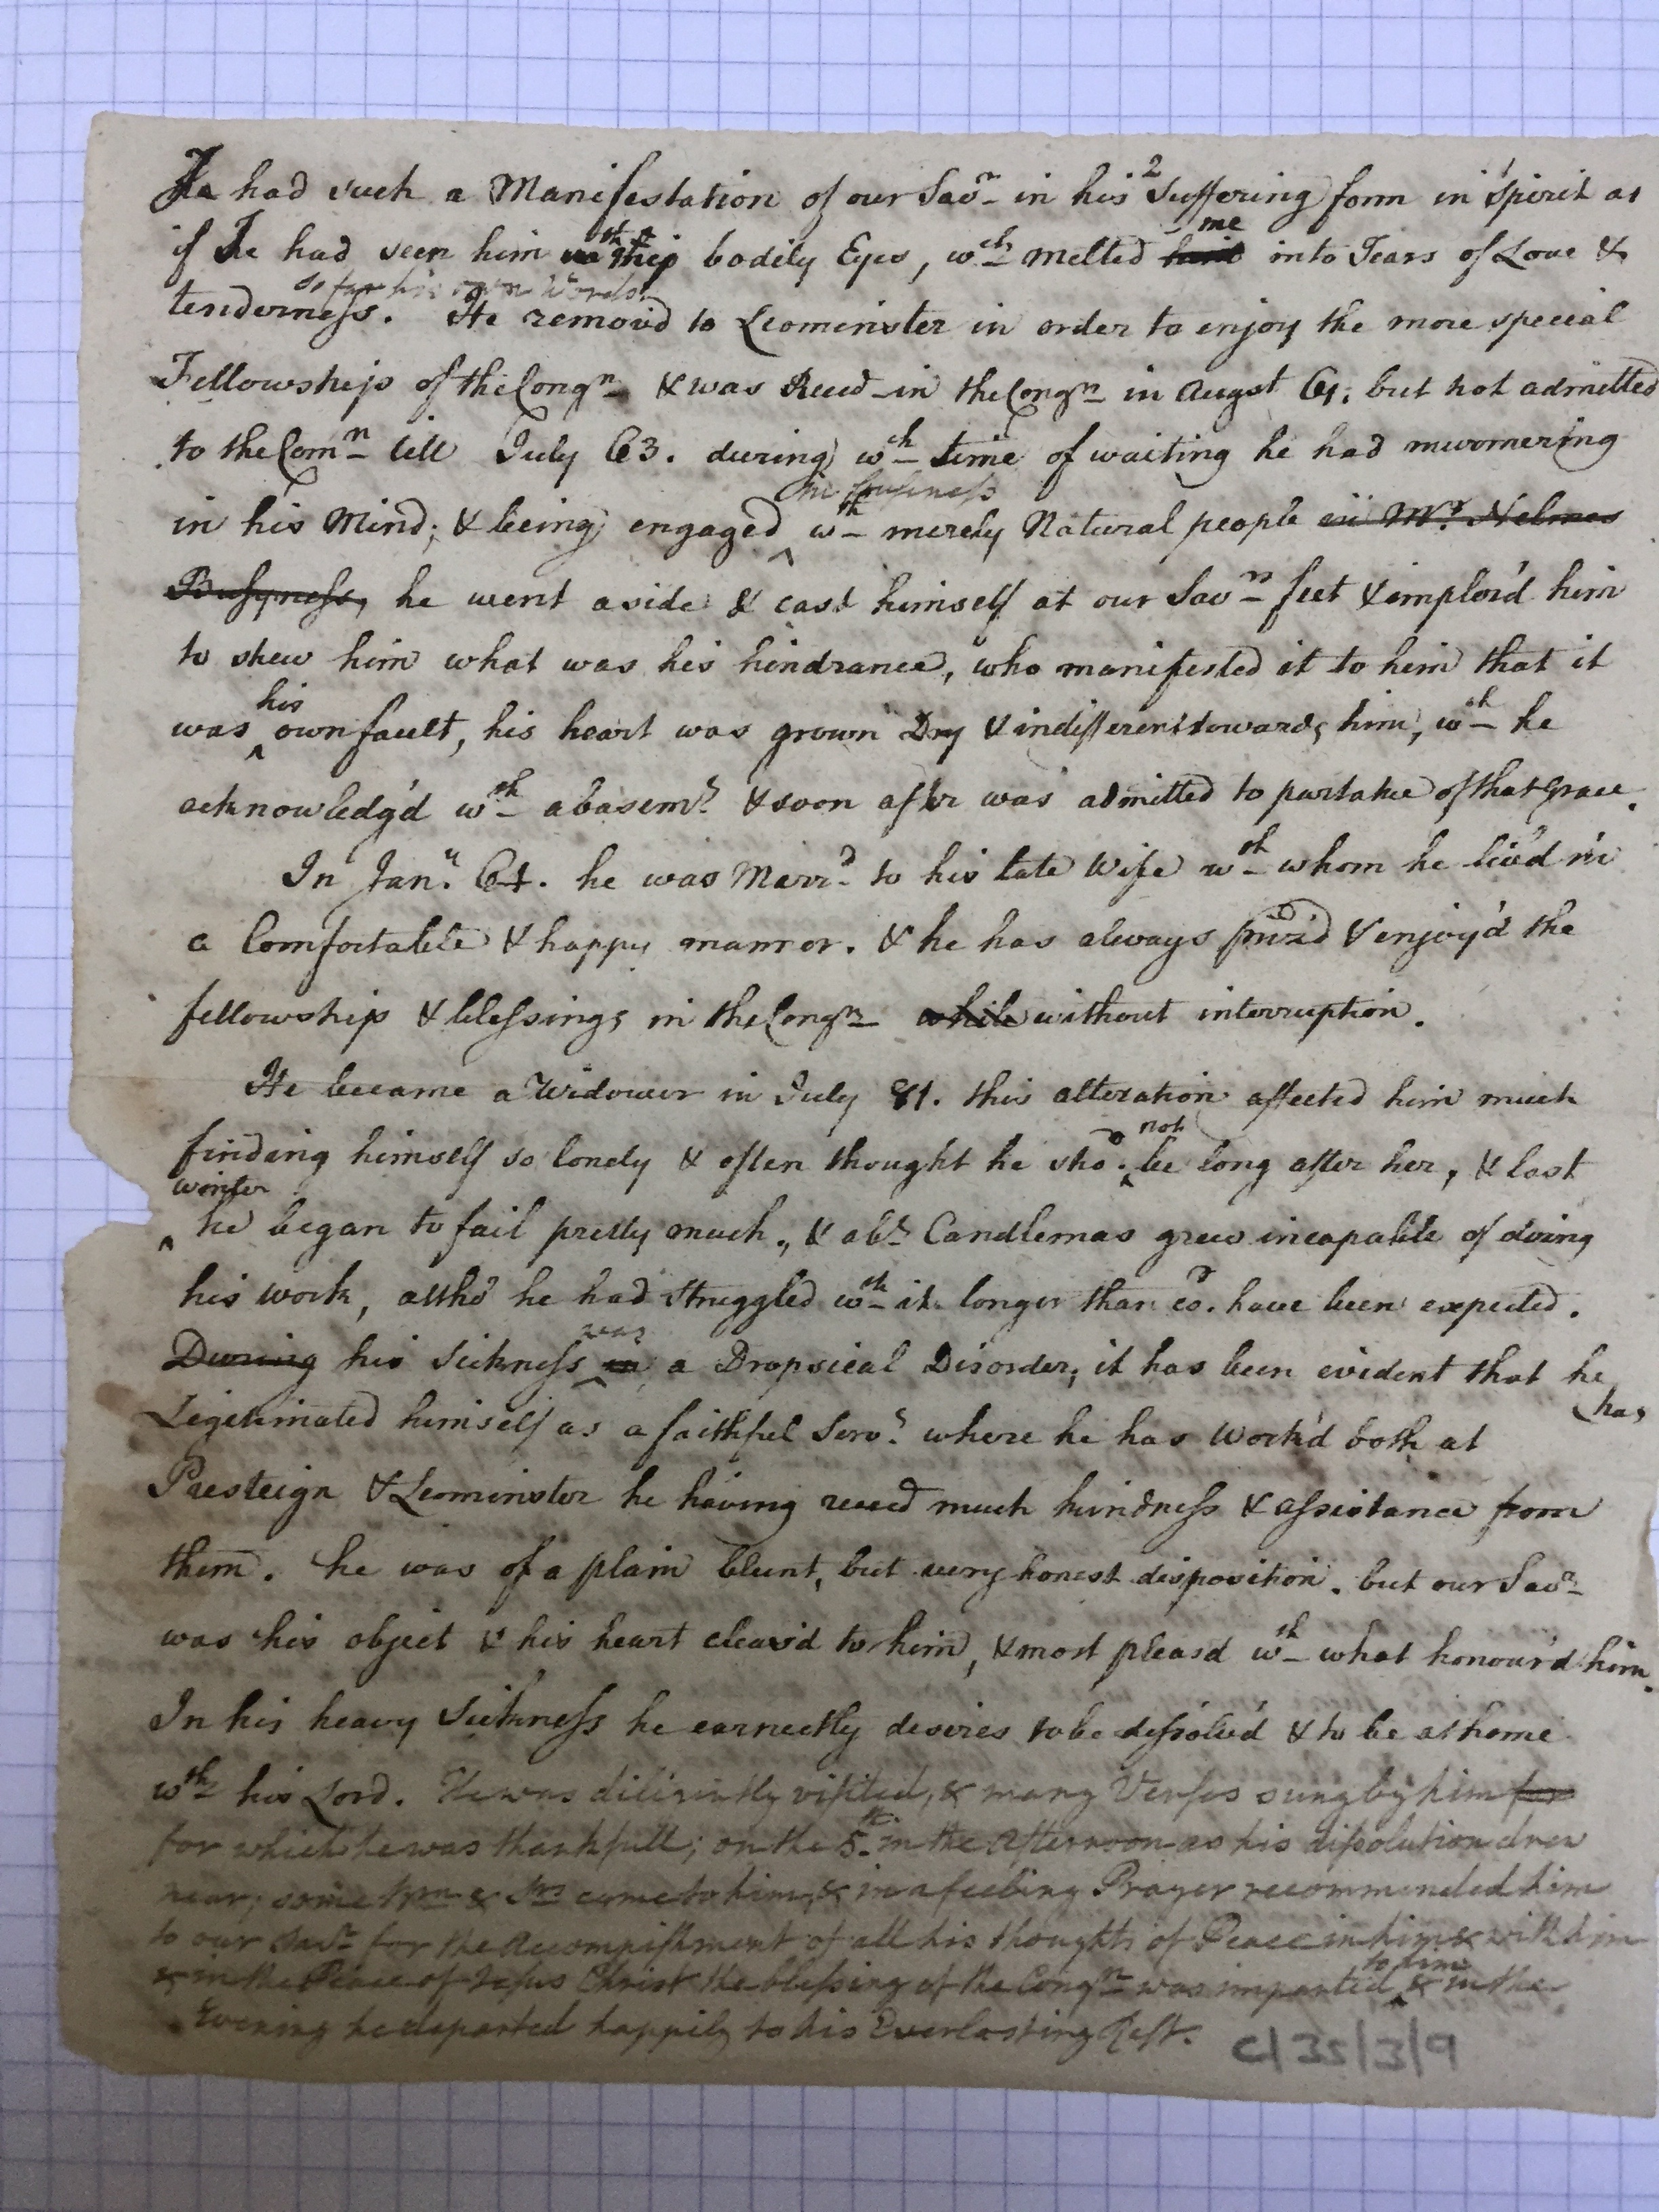 I had such a Manifestation of our Savr in his Suffering form in Spirit as
if I had seen him with bodily Eyes, wch melted him me into Tears of Love &
so far his own Words.
tenderness. He remov'd to Leominster in order to enjoy the more special
Fellowships of the Congn & was Recd in the Congn in Augst 61. but not admitted
to the Comn till July 63. during wch time of waiting he had murmering
in business
in his Mind; & being engaged wth merely Natural people in Mr. Nelmes
Busyness, he went aside & cast himself at our Savrs feet & implor'd him
to shew him what was his hindrance, who manifested it to him that it
was his own fault, his heart was grown Dry & indifferent towards him, wch he
acknowledg'd wth abasemt. & soon after was admitted to partake of that Grace.
In Jany. 64. he was Marrd to his late Wife wth whom he liv'd in
a Comfortable & happy manner. & he has always priz'd & enjoy'd the
fellowship & blessings in the Congn while without interruption.
He became a Widower in July 81. this alteration affected him much
finding himself so lonely & often thought he shod. not be long after her, & last
winter
he began to fail pretty much., & abt. Candlemas grew incapable of doing
his work, altho' he had struggled wth it longer than cod. have been expected.
During his Sickness in was a Dropsical Disorder, it has been evident that he
has
Legitimated himself as a faithful Servt. where he has work'd both at
Presteign & Leominster he having reced much kindness & assistance from
them. he was of a plain blunt, but very honest disposition. but our Savr
was his object & his heart cleav'd to him, & most pleas'd wth what honour'd him.
In his heavy Sickness he earnestly desires to be dissolv'd & to be at home
wth his Lord. He was diligintly visited, & many Verses sung by him for
for which he was thankfull; on the 5th. in the Afternoon as his dissolution drew
near; some Brn & Srs came to him, & in a feeling Prayer recommended him
to our Savr for the Accompishment of all his thoughts of Peace in him & with him
& in the Peace of Jesus Christ the blessing of the Congn was imparted to him & in the
Evening he departed happily to his Everlasting Rest.
C/35/3/9